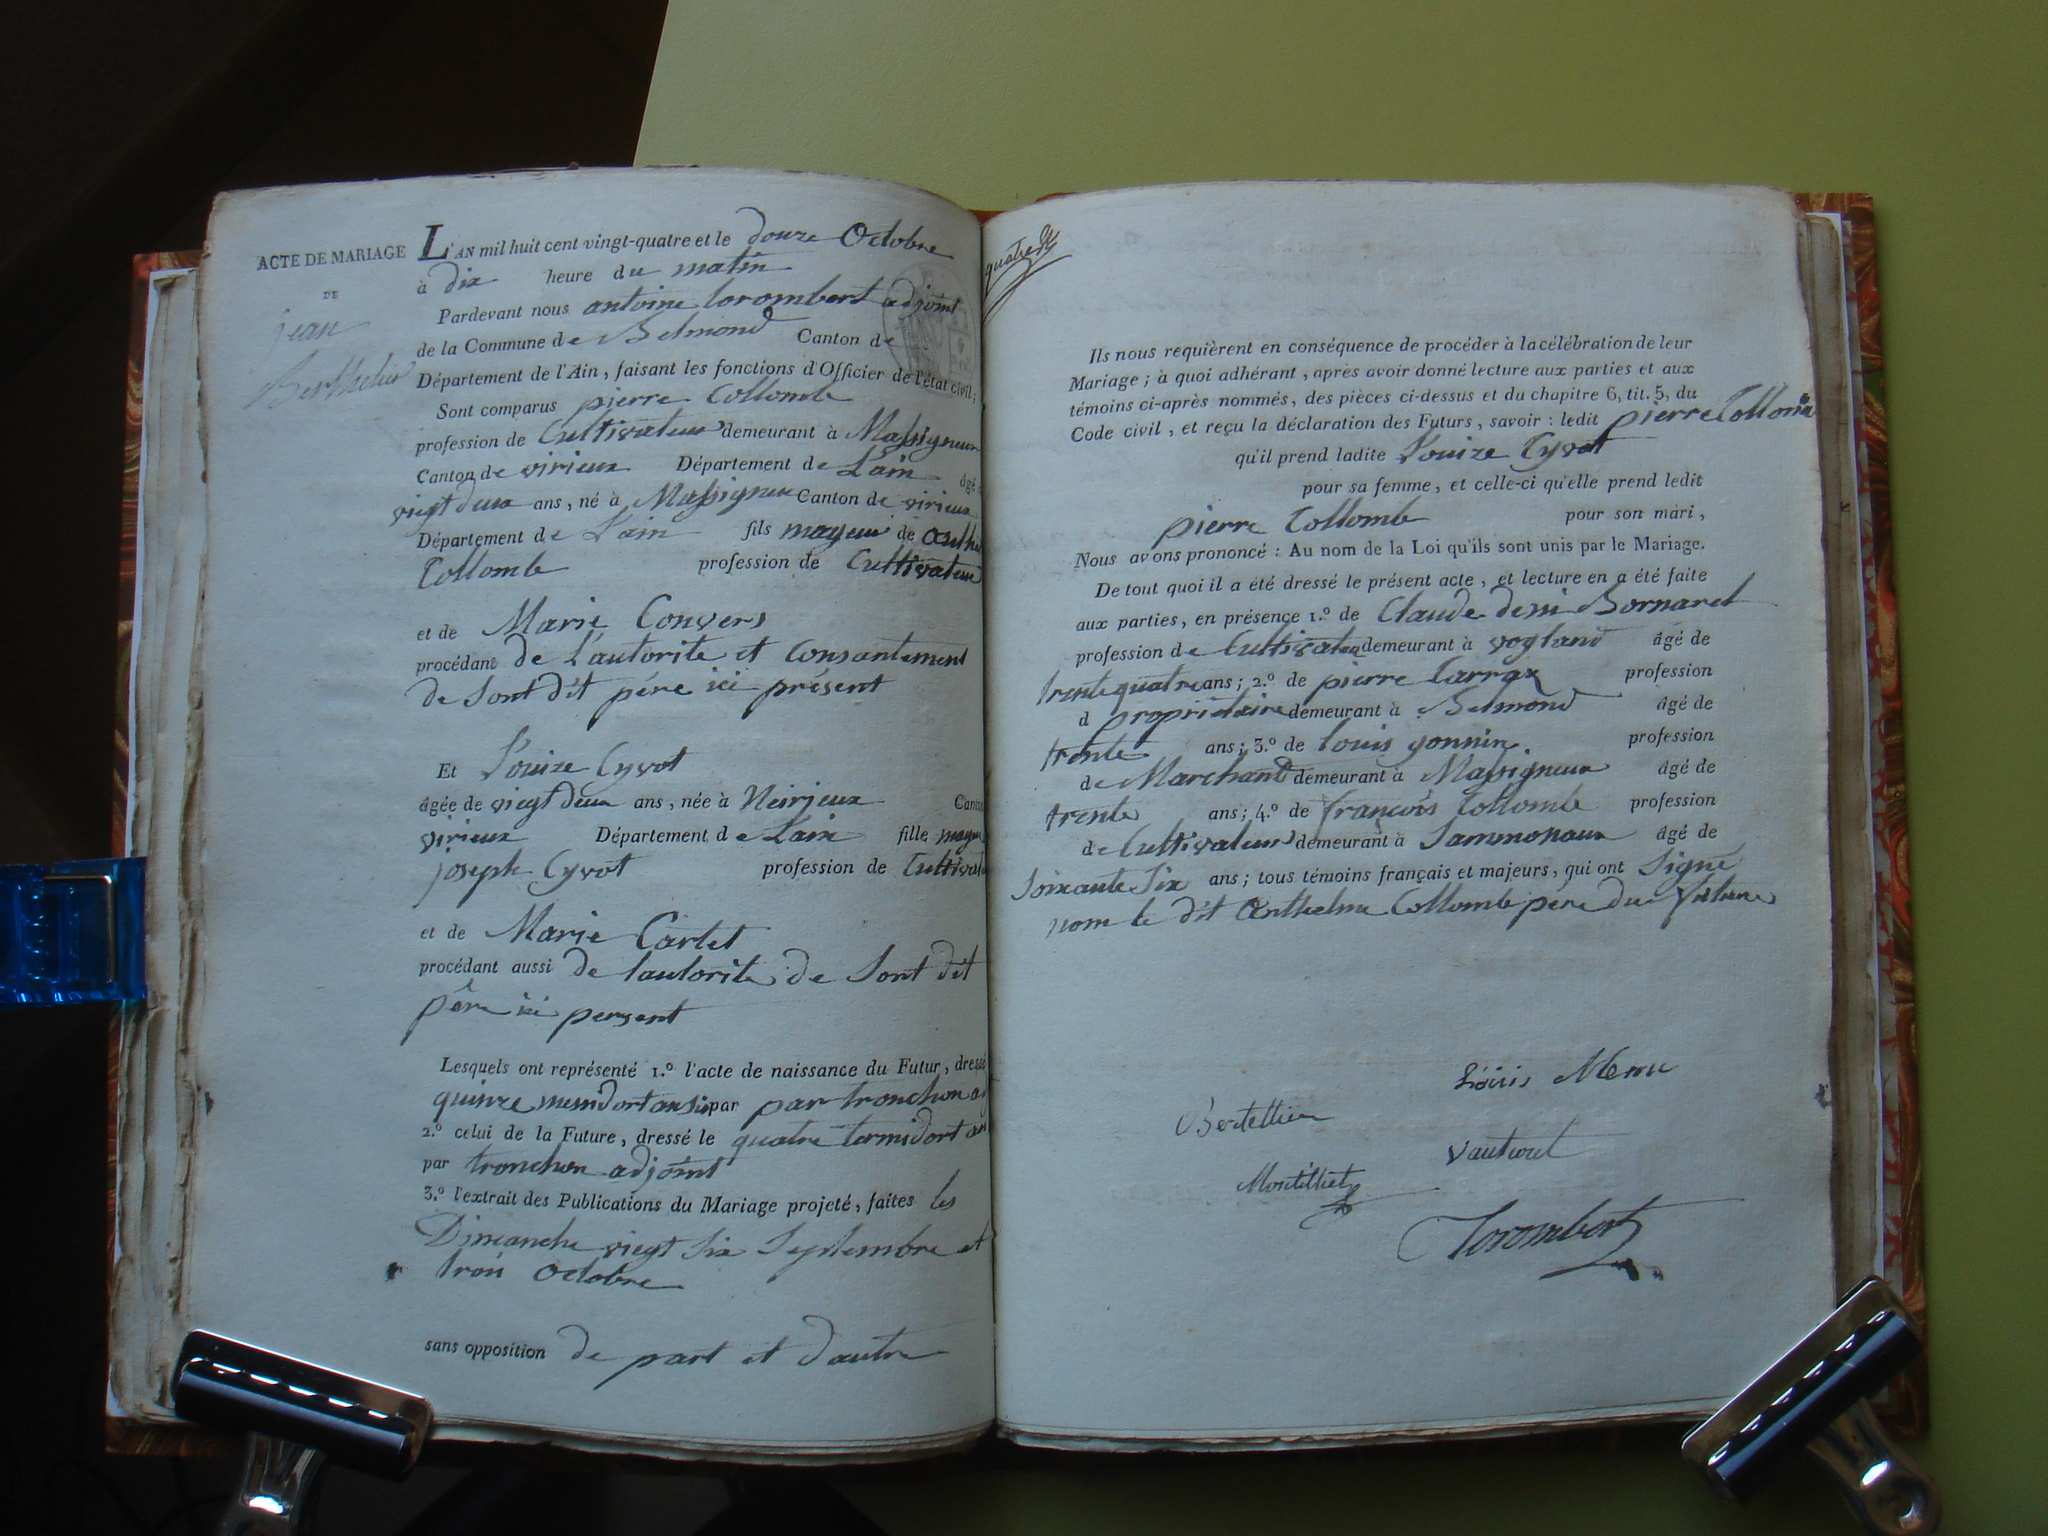 ACTE DE MARIAGE
DE
jean
Berthelier
L'AN mil huit cent vingt-quatre et le douze Octobre
à dix heure du matin
Pardevant nous antoine Lorombert adjoint
de la Commune de Belmond Canton de
Département de l'Ain, faisant les fonctions d'Officier de l'état civil;
Sont comparus pierre Collomb
profession de Cultivateur demeurant à Massigneux
Canton de virieux Département de Lain âgé
viegt deux ans, né à Massigneu Canton de virieux
Département de L'ain fils mageur de anth
Collomb profession de Cultivateur
et de Marie Convers
procédant de L'autorite et Consantement
de Sont dit pére ici présent
Et Louize Cyvot
âgée de viegt deux ans, née à Neirieux Canton
virieux Département de Lain fille mageur
joseph Cyvot profession de Cultivat
et de Marie Cartet
procédant aussi de lautorite de Sont dit
pére ici persent
Lesquels ont représenté 1.º l'acte de naissance du Futur, dressé
quinze messidort an six par par tronchon a
2.º celui de la Future, dressé le quatre termidort an
par tronchon adjoint
3.º l'extrait des Publications du Mariage projeté, faites les
Dimanche viegt Six Septembre et
troii octobre
sans opposition de part et dautre
Ils nous requièrent en conséquence de procéder à la célébration de leur
Mariage; à quoi adhérant, après avoir donné lecture aux parties et aux
témoins ci-après nommés, des pièces ci-dessus et du chapitre 6, tit. 5, du
Code civil, et reçu la déclaration des Futurs, savoir: ledit pierre Collomb
qu'il prend ladite Louize Cyvot
pour sa femme, et celle-ci qu'elle prend ledit
pierre Collomb pour son mari,
Nous avons prononcé: Au nom de la Loi qu'ils sont unis par le Mariage.
De tout quoi il a été dressé le présent acte, et lecture en a été faite
aux parties, en présence 1.º de Claude deni Bornaret
profession de Cultivateu demeurant à vogland âgé de
trente quatre ans; 2.º de pierre Carrax profession
d propriétaire demeurant à Belmond âgé de
trente ans; 3.º de louis gonnin profession
de Marchand demeurant à Massigneux âgé de
trente ans; 4.º de françois Collomb profession
de Cultivateur demeurant à Sammonaux âgé de
Soixante Six ans; tous témoins français et majeurs, qui ont Signé
nom le dit Anthelme Collomb pére du future
Louis
Bertellier
Montilliet
Lorombert